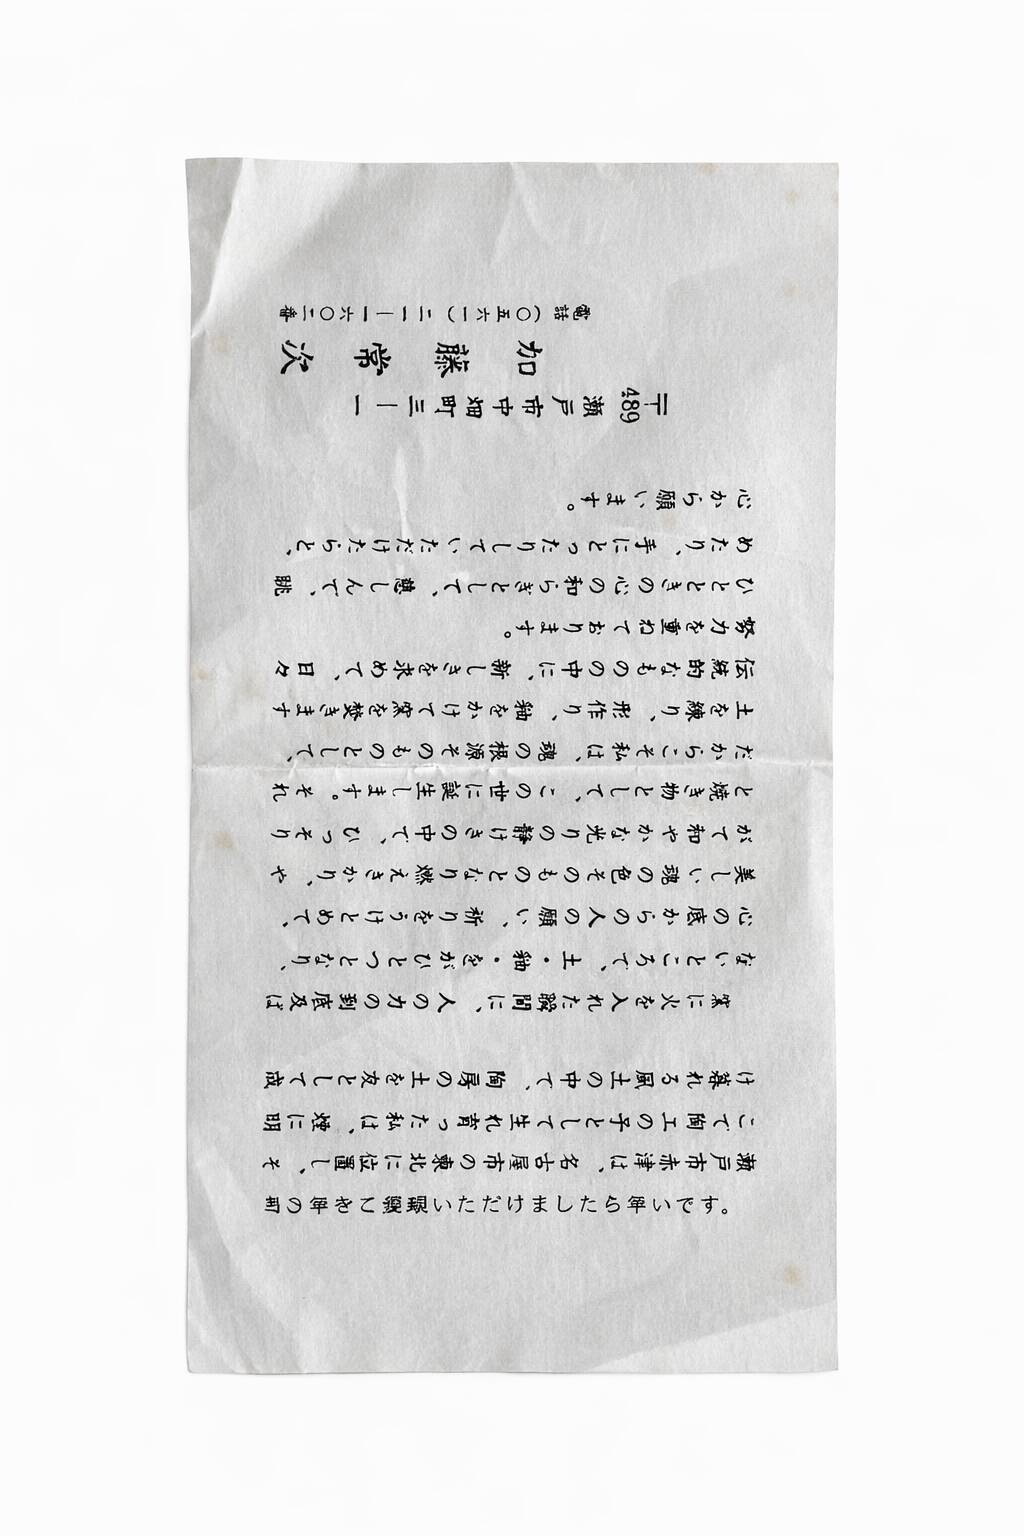 いただけましたら いです。
瀬戸市赤津は、名古屋市の東北に位置し、そ
こで陶工の子として生れ育った私は、煙に明
け暮れる風土の中で、陶房の土を友として成
窯に火を入れた瞬間に、人の力の到底及ば
ないところで、土・釉・をがひとつとなり、
心の底からの人の願い、祈りをうけとめて、
美しい魂の色そのものとなり燃えさかり、や
がて和やかな光りの静けさの中で、ひっそり
と焼き物として、この世に誕生します。それ
だからこそ私は、魂の根源そのものとして、
土を練り、形作り、釉をかけて窯を焚きます
伝統的なものの中に、新しさを求めて、日々
努力を重ねております。
ひとときの心の和らぎとして、慈しんで、眺
めたり、手にとったりしていただけたらと、
心から願います。
〒489 瀬戸市中畑町三―一
加藤常次
電話(〇五六一)二一―一六〇二番